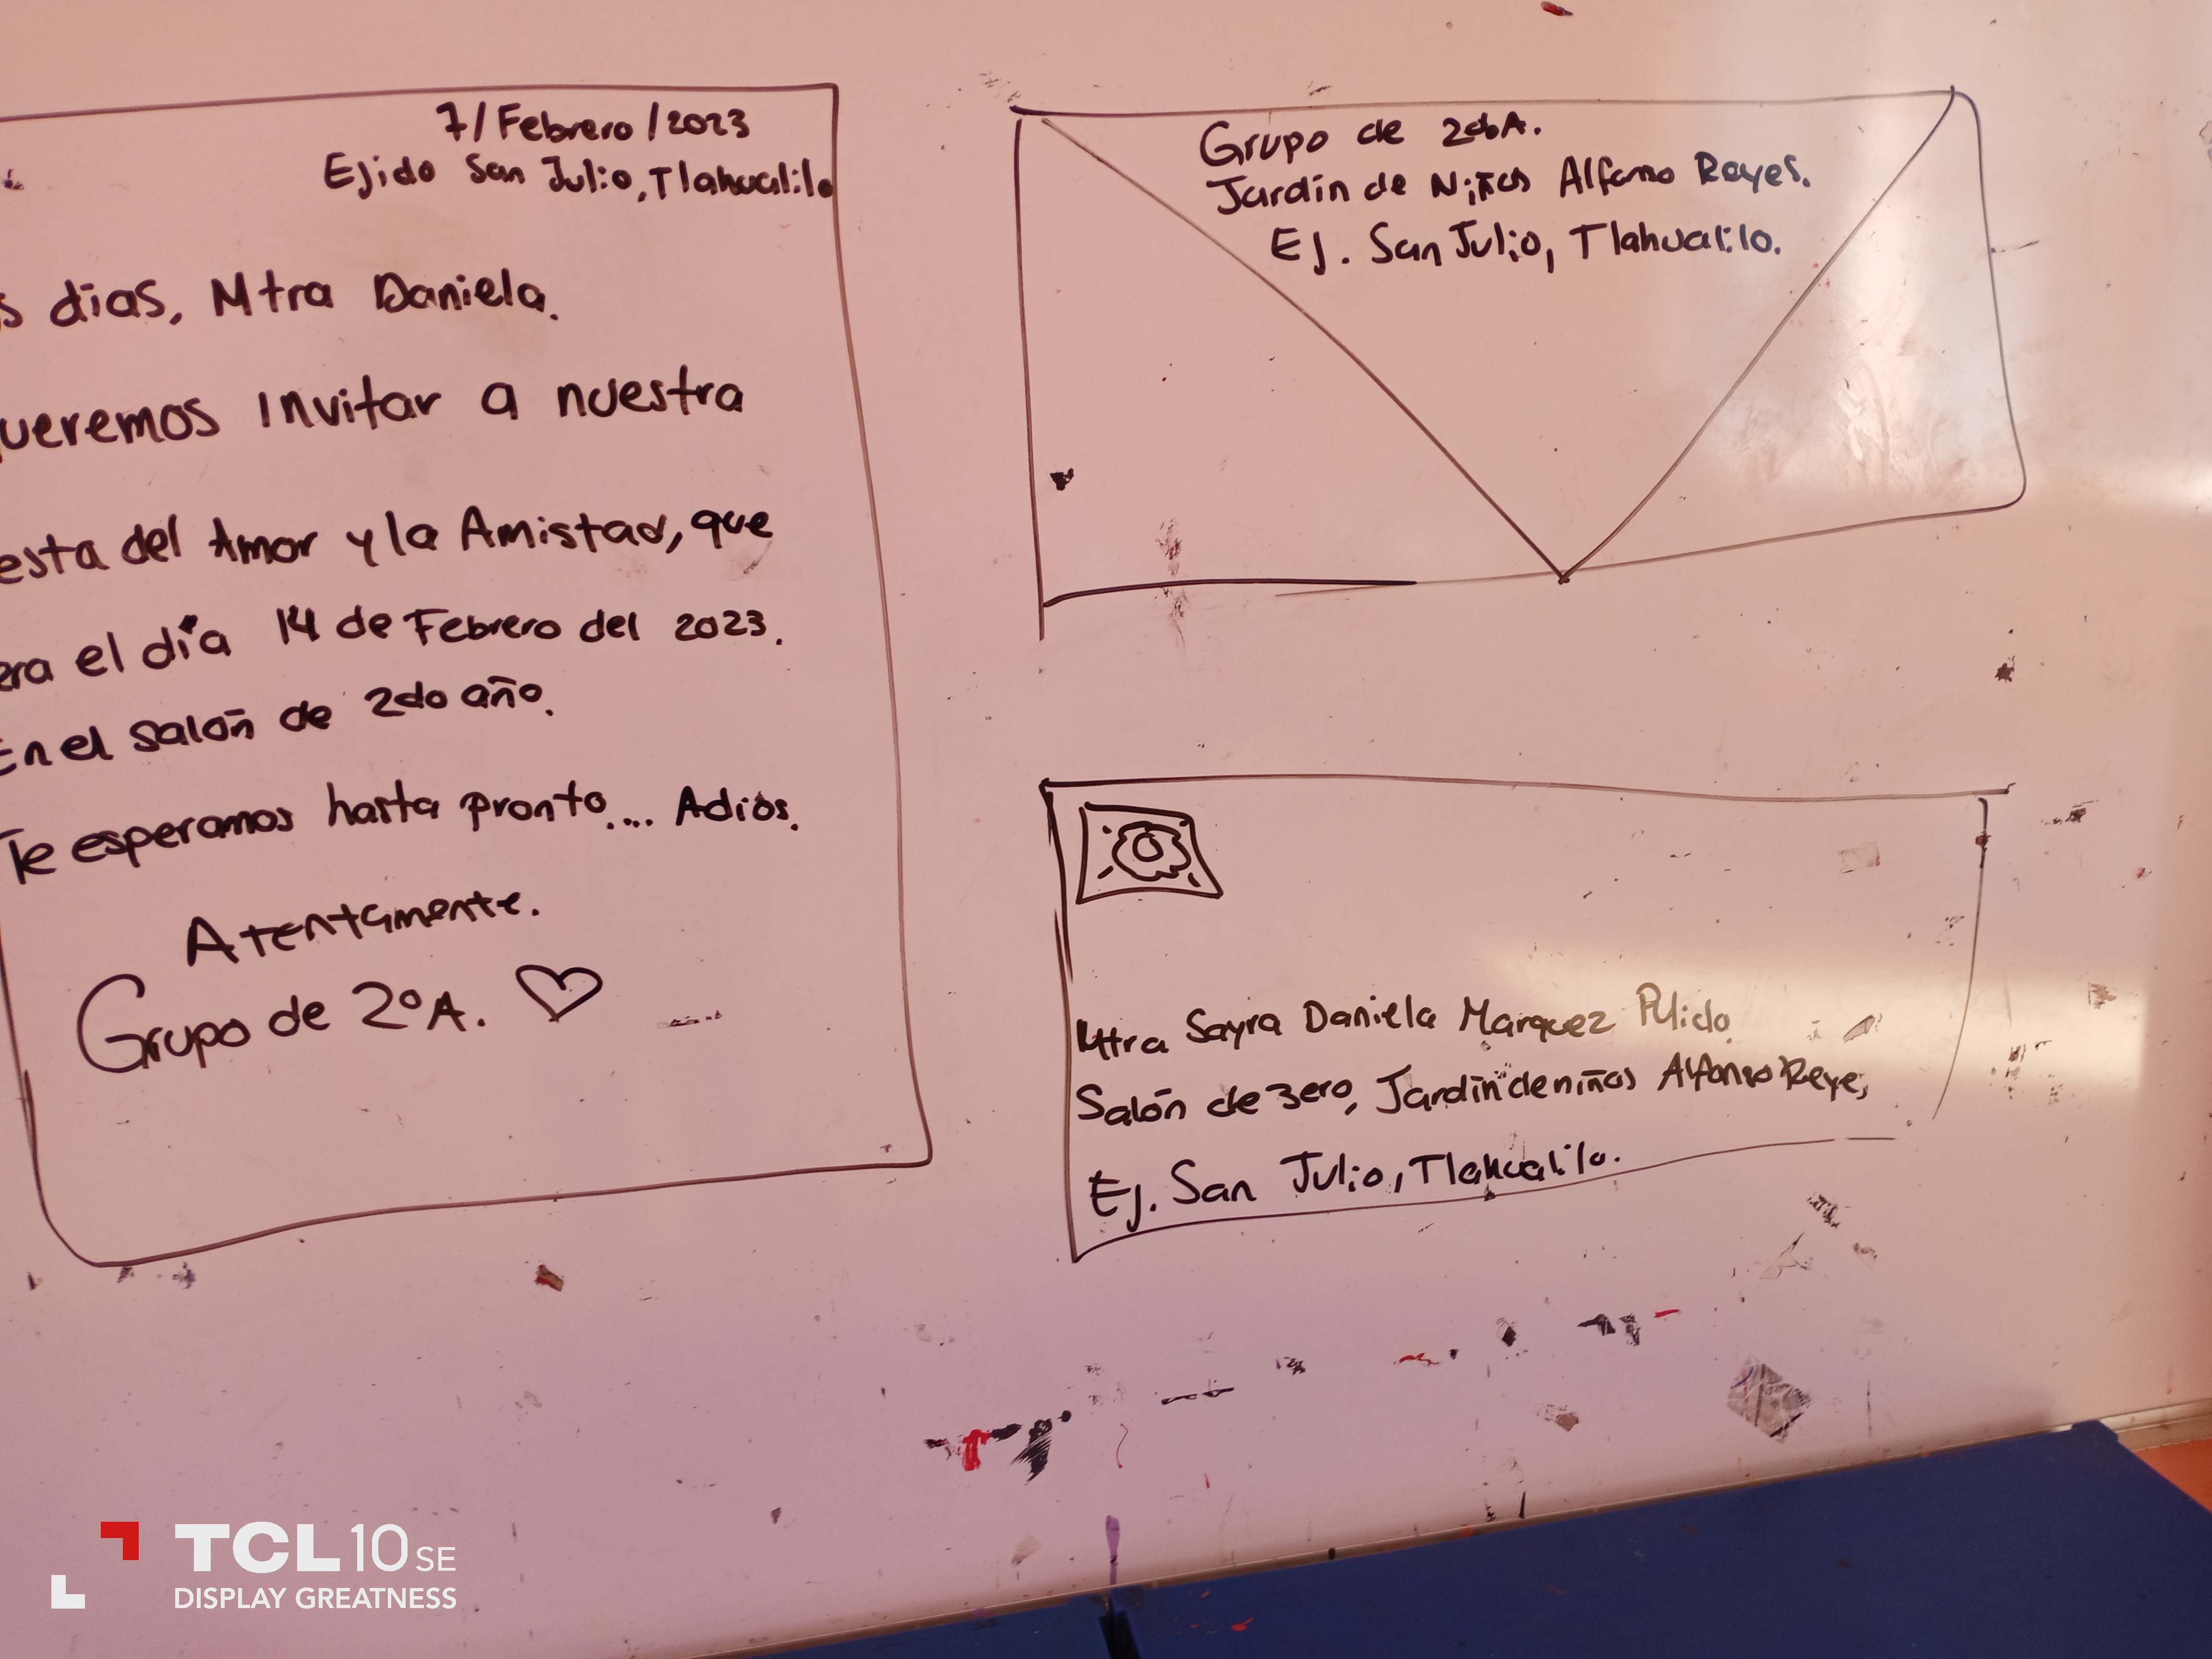 7/Febrero/2023
Ejido San Julio, Tlahualilo
días, Mtra Daniela.
queremos invitar a nuestra
esta del Amor y la Amistad, que
era el día 14 de Febrero del 2023.
En el salón de 2do año.
Te esperamos hasta pronto.... Adiós.
Atentamente.
Grupo de 2°A.
Grupo de 2doA.
Jardín de Niños Alfonso Reyes.
Ej. San Julio, Tlahualilo.
Mtra Sayra Daniela Marquez Pulido
Salón de 3ero, Jardín de niños Alfonso Reyes
Ej. San Julio, Tlahualilo.
TCL 10 SE
DISPLAY GREATNESS